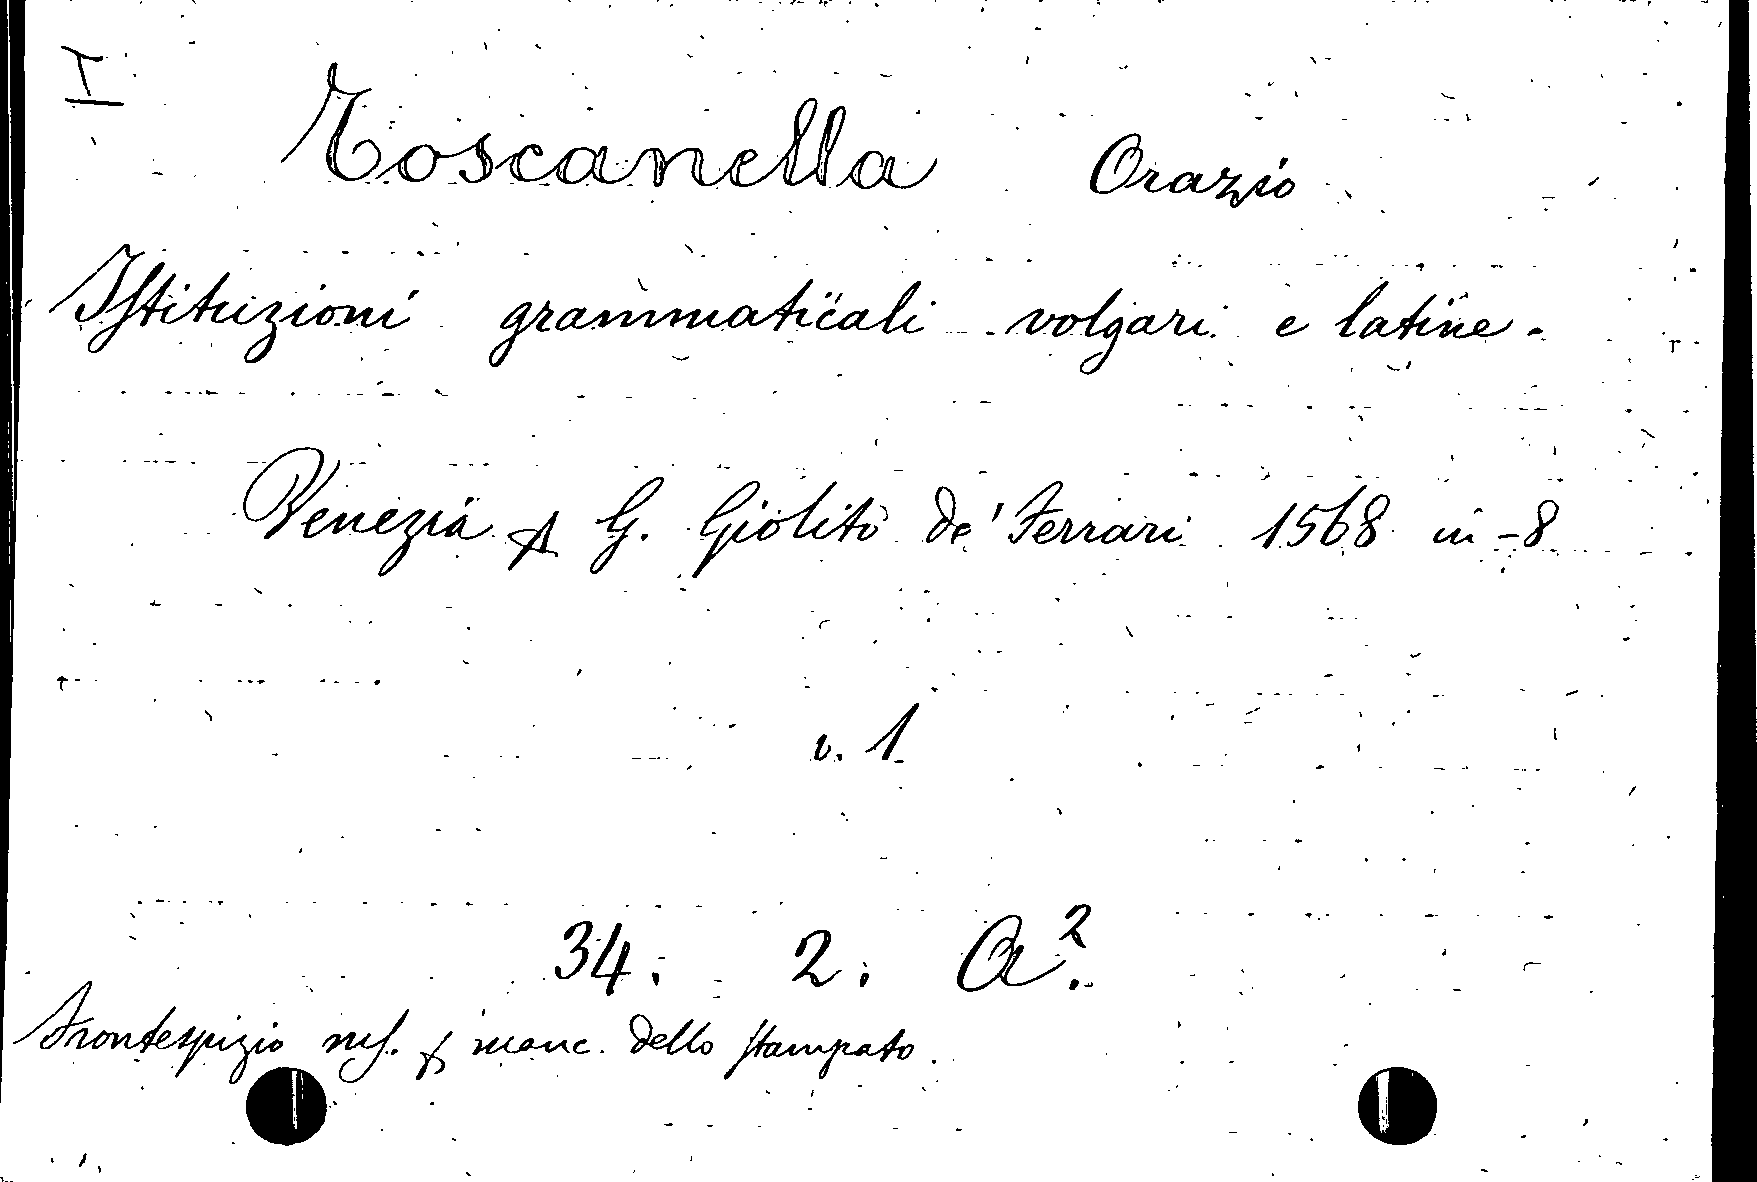 I
Toscanella Orazio
Istituzioni grammaticali volgari e latine.
Venezia p G. Giolito de' Ferrari 1568 in-8
v. 1
34. 2. A².
Frontespizio ms. p manc. dello stampato.